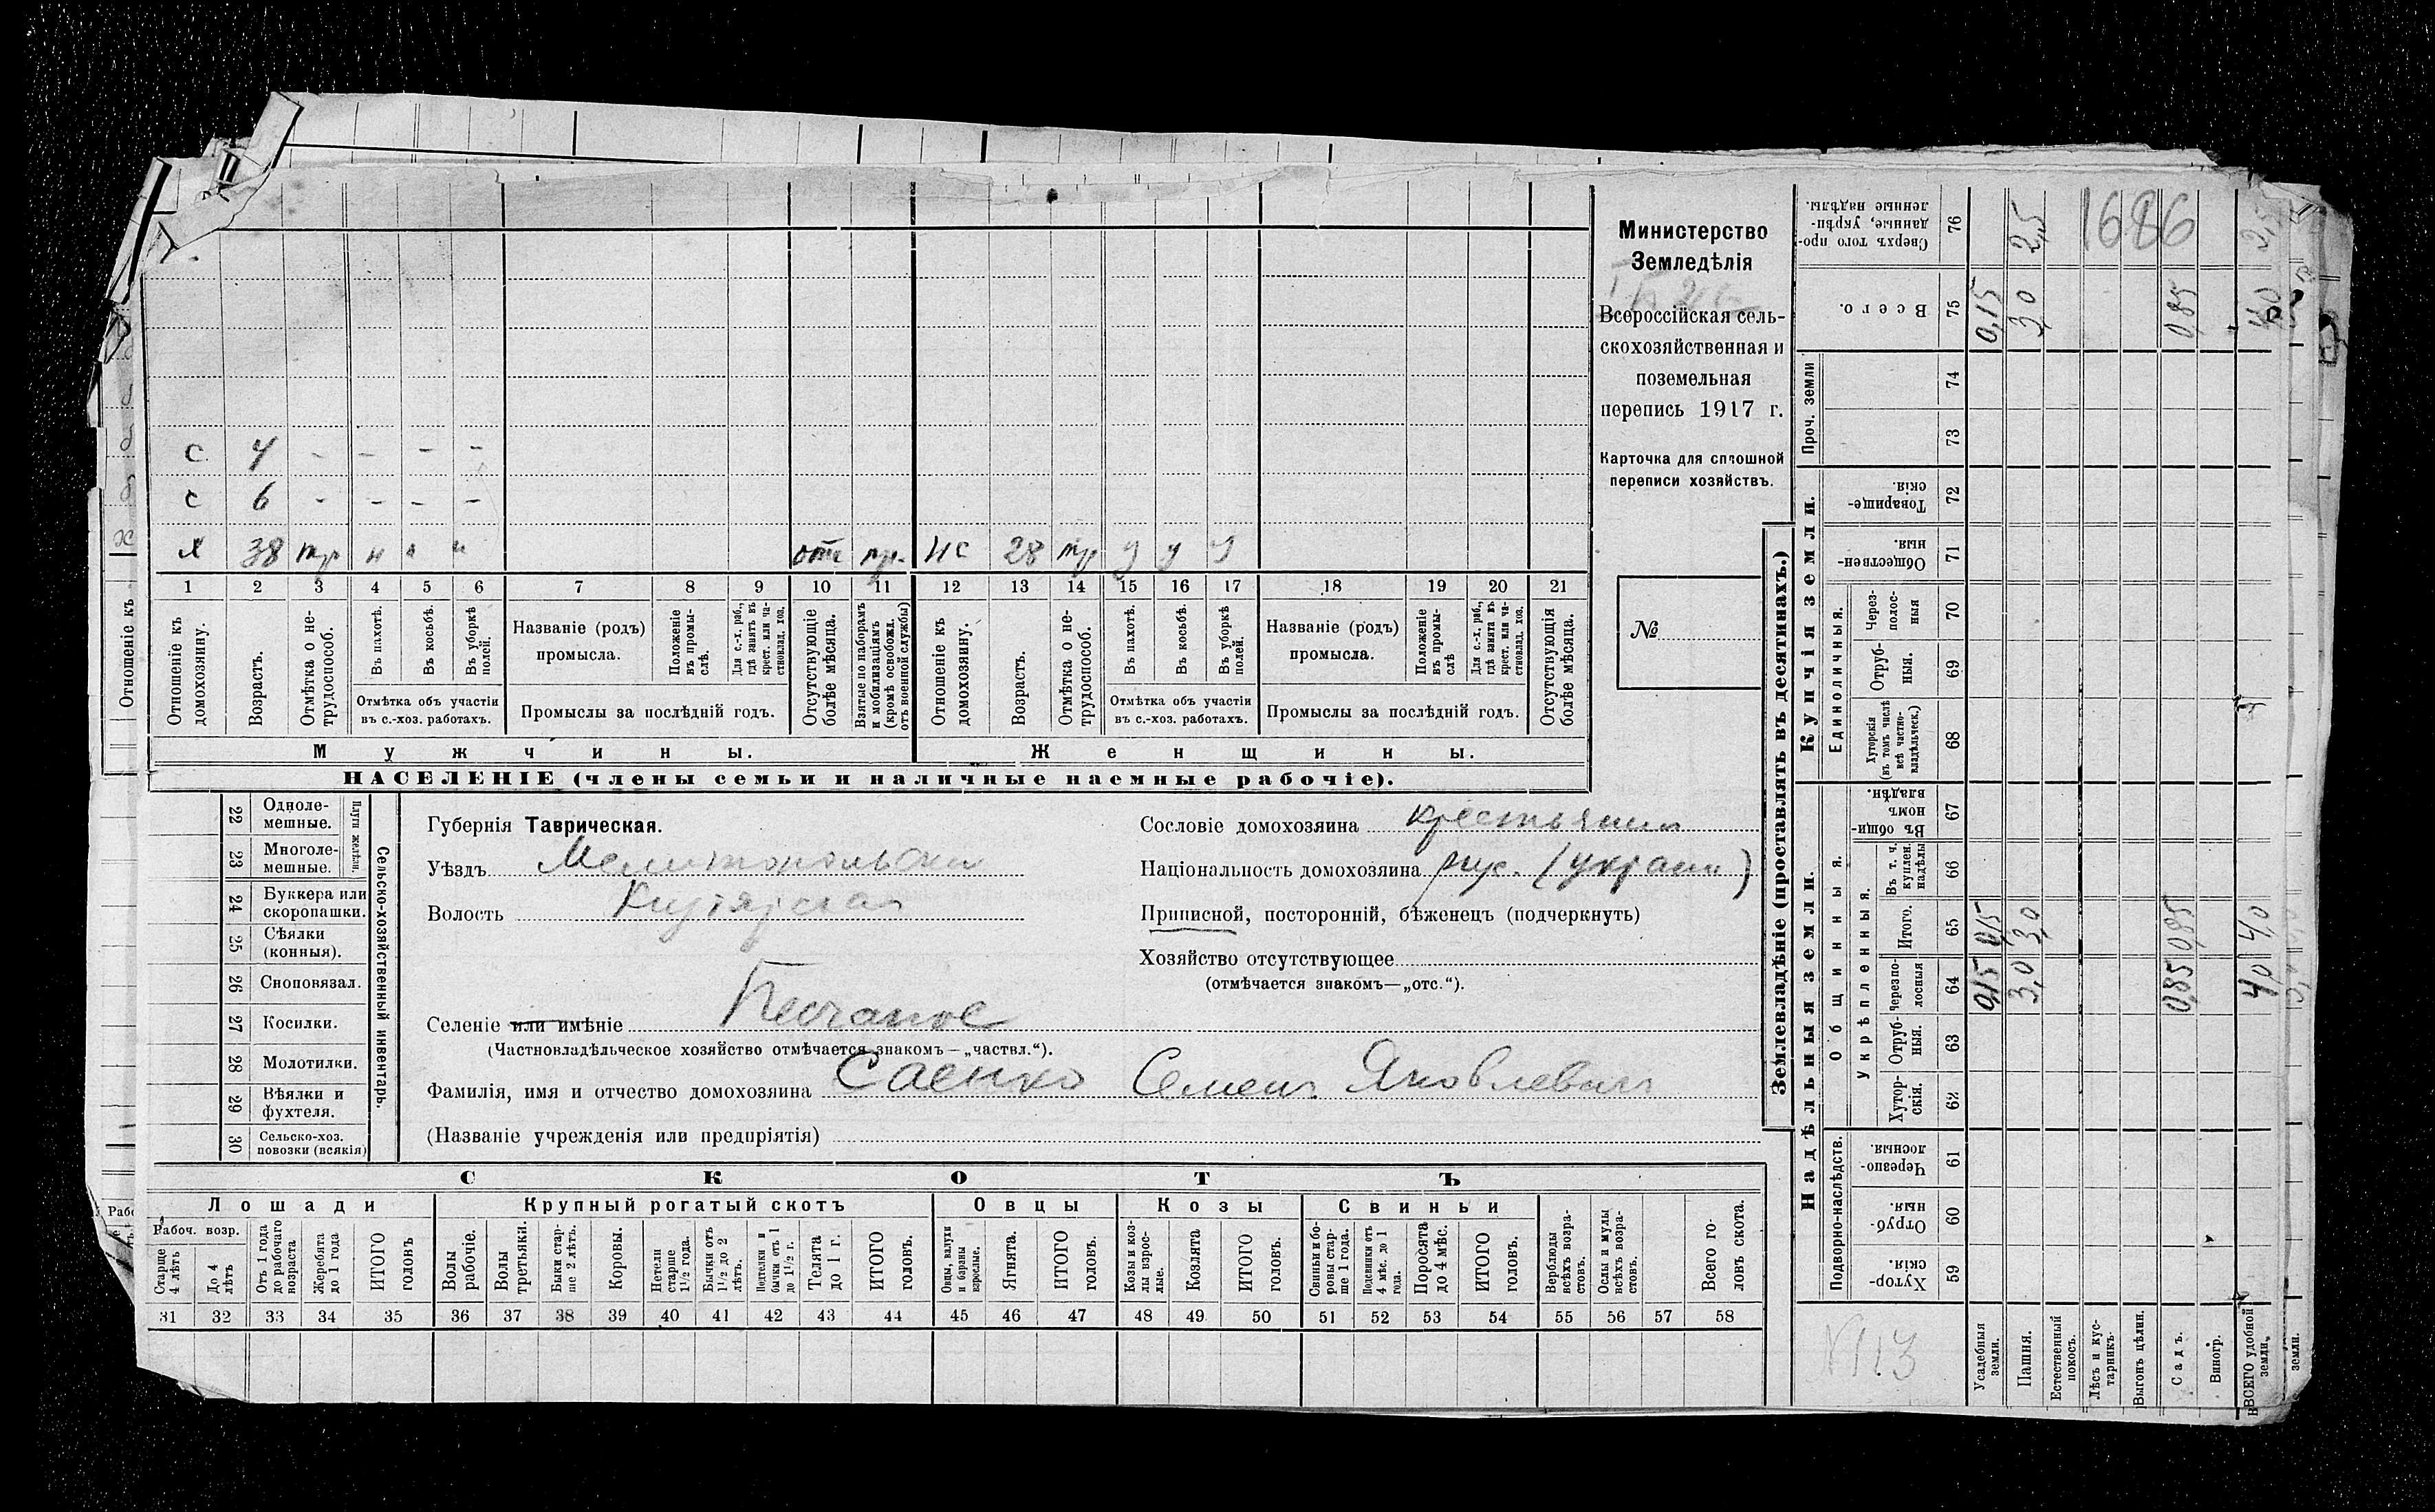 с 4 - - - -
с 6 - - - -
х 38 тр н н н отс пр. нс 28 тр у у у
1 2 3 4 5 6 7 8 9 10 11 12 13 14 15 16 17 18 19 20 21
Отношеніе къ домохозяину.
Возрастъ.
Отмѣтка о не-
трудоспособ.
Въ пахотѣ.
Въ косьбѣ.
Въ уборкѣ
полей.
Отмѣтка объ участіи
въ с.-хоз. работахъ.
Названіе (родъ)
промысла.
Положеніе
въ промы-
слѣ.
Для с.-х. раб.,
гдѣ занятъ въ
крест. или ча-
ствовлад. хоз.
Промыслы за послѣдній годъ.
Отсутствующіе
болѣе мѣсяца.
Взятые по наборамъ
и мобилизаціямъ
(кромѣ освобожд.
отъ военной службы)
Отношеніе къ
домохозяину.
Возрастъ.
Отмѣтка о не-
трудоспособ.
Въ пахотѣ.
Въ косьбѣ.
Въ уборкѣ
полей.
Отмѣтка объ участіи
въ с.-хоз. работахъ.
Названіе (родъ)
промысла.
Положеніе
въ промы-
слѣ.
Для с.-х. раб.,
гдѣ занята въ
крест. или ча-
ствовлад. хоз.
Промыслы за послѣдній годъ.
Отсутствующія
болѣе мѣсяца.
Мужчины.
Женщины.
НАСЕЛЕНІЕ (члены семьи и наличные наемные рабочіе).
Министерство
Земледѣлія
Всероссійская сель-
скохозяйственная и
поземельная
перепись 1917 г.
Карточка для сплошной
переписи хозяйствъ.
№
22 Одноле-
мешные.
23 Многоле-
мешные.
Плуги желѣзн.
24 Буккера или
скоропашки.
25 Сѣялки
(конныя).
26 Сноповязал.
27 Косилки.
28 Молотилки.
29 Вѣялки и
фухтеля.
30 Сельско-хоз.
повозки (всякія)
Сельско-хозяйственный инвентарь.
Губернія Таврическая.
Уѣздъ Мелитопольскій
Волость
Селеніе или имѣніе Песчаное
(Частновладѣльческое хозяйство отмѣчается знакомъ—„частвл.“).
Фамилія, имя и отчество домохозяина Саенко Семенъ Яковлевичъ
(Названіе учрежденія или предпріятія)
Сословіе домохозяина крестьянинъ
Національность домохозяина рус. (украин)
Приписной, посторонній, бѣженецъ (подчеркнуть)
Хозяйство отсутствующее
(отмѣчается знакомъ—„отс.“).
СКОТЪ
Лошади
Крупный рогатый скотъ
Овцы
Козы
Свиньи
Рабоч. возр.
Старше
4 лѣтъ
До 4
лѣтъ
Отъ 1 года
до рабочаго
возраста
Жеребята
до 1 года
ИТОГО
головъ
Волы
рабочіе.
Волы
третьяки.
Быки стар-
ше 2 лѣтъ.
Коровы.
Нетели
старше
1½ года.
Бычки отъ
1½ до 2
лѣтъ.
Подтелки и
бычки отъ 1
до 1½ г.
Телята
до 1 г.
ИТОГО
головъ.
Овцы, валухи
и бараны
взрослые.
Ягнята.
ИТОГО
головъ.
Козы и коз-
лы взрос-
лые.
Козлята
ИТОГО
головъ.
Свиньи и бо-
ровы стар-
ше 1 года.
Подсвинки отъ
4 мѣс. до 1
года.
Поросята
до 4 мѣс.
ИТОГО
головъ.
Верблюды
всѣхъ возра-
стовъ.
Ослы и мулы
всѣхъ возра-
стовъ.
Всего го-
ловъ скота.
31 32 33 34 35 36 37 38 39 40 41 42 43 44 45 46 47 48 49 50 51 52 53 54 55 56 57 58
Землевладѣніе (проставлять въ десятинахъ.)
Надѣльныя земли.
Купчія земли.
Подворно-наслѣдств.
Общинныя.
Укрѣпленныя.
Единоличныя.
Проч. земли
Сверхъ того про-
данные, укрѣп-
ленные надѣлы.
76 2,5 1686
Всего.
75 0,15 3,0 0,85 4,0
74
73
Товарище-
скія.
72
Обществен-
ныя.
71
Через-
полос-
ныя
70
Отруб-
ныя.
69
Хуторскія
(въ томъ числѣ
всѣ частно-
владѣльческ.)
68
Въ общин-
номъ
владѣн.
67
Въ т. ч.
куплен.
надѣлы
66
Итого.
65 0,15 3,0 0,85 4,0
Черезпо-
лосныя
64 0,15 3,0 0,85 4,0
Отруб-
ныя.
63
Хутор-
скія.
62
Черезпо-
лосныя.
61
Отруб-
ныя.
60
Хутор-
скія.
59
Усадебныя
земли.
Пашня.
Естественный
покосъ.
Лѣсъ и кус-
тарникъ.
Выгонъ цѣлин.
Садъ.
Виногр.
ВСЕГО удобной
земли.
земли.
Отношеніе къ